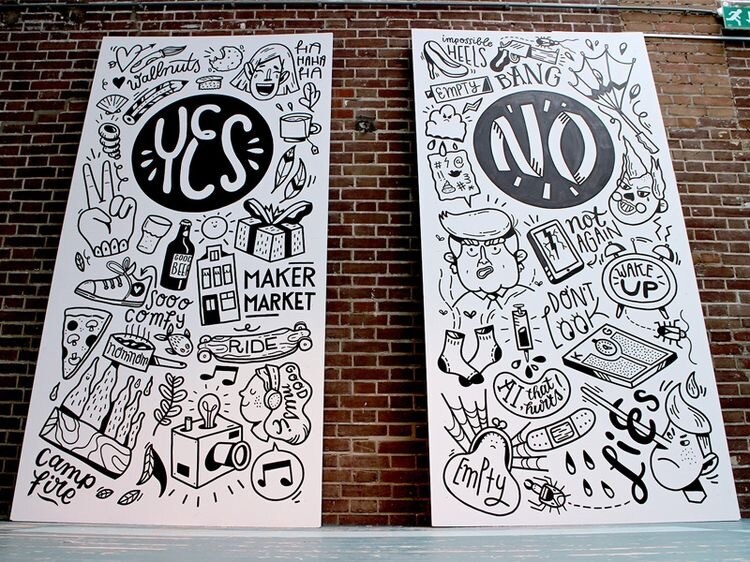 HA
HAHA
HA
wallnuts
YES
GOOD
BEER
MAKER
MARKET
Sooo
comfy
RIDE
nomnom
DO
music
camp
fire
impossible
HEELS
BANG
EMPTY
NO
not
AGAIN
WAKE
UP
DON'T
LOOK
K
that
hurts!
LiES
Empty